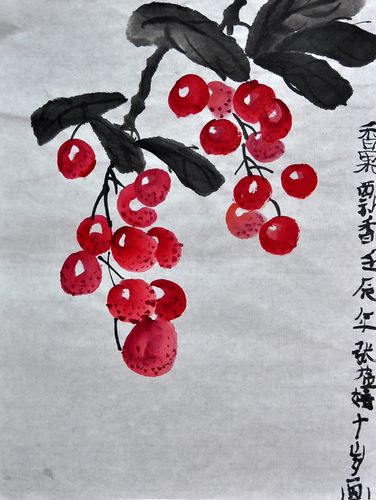 香果飘香壬辰年张猛十岁画